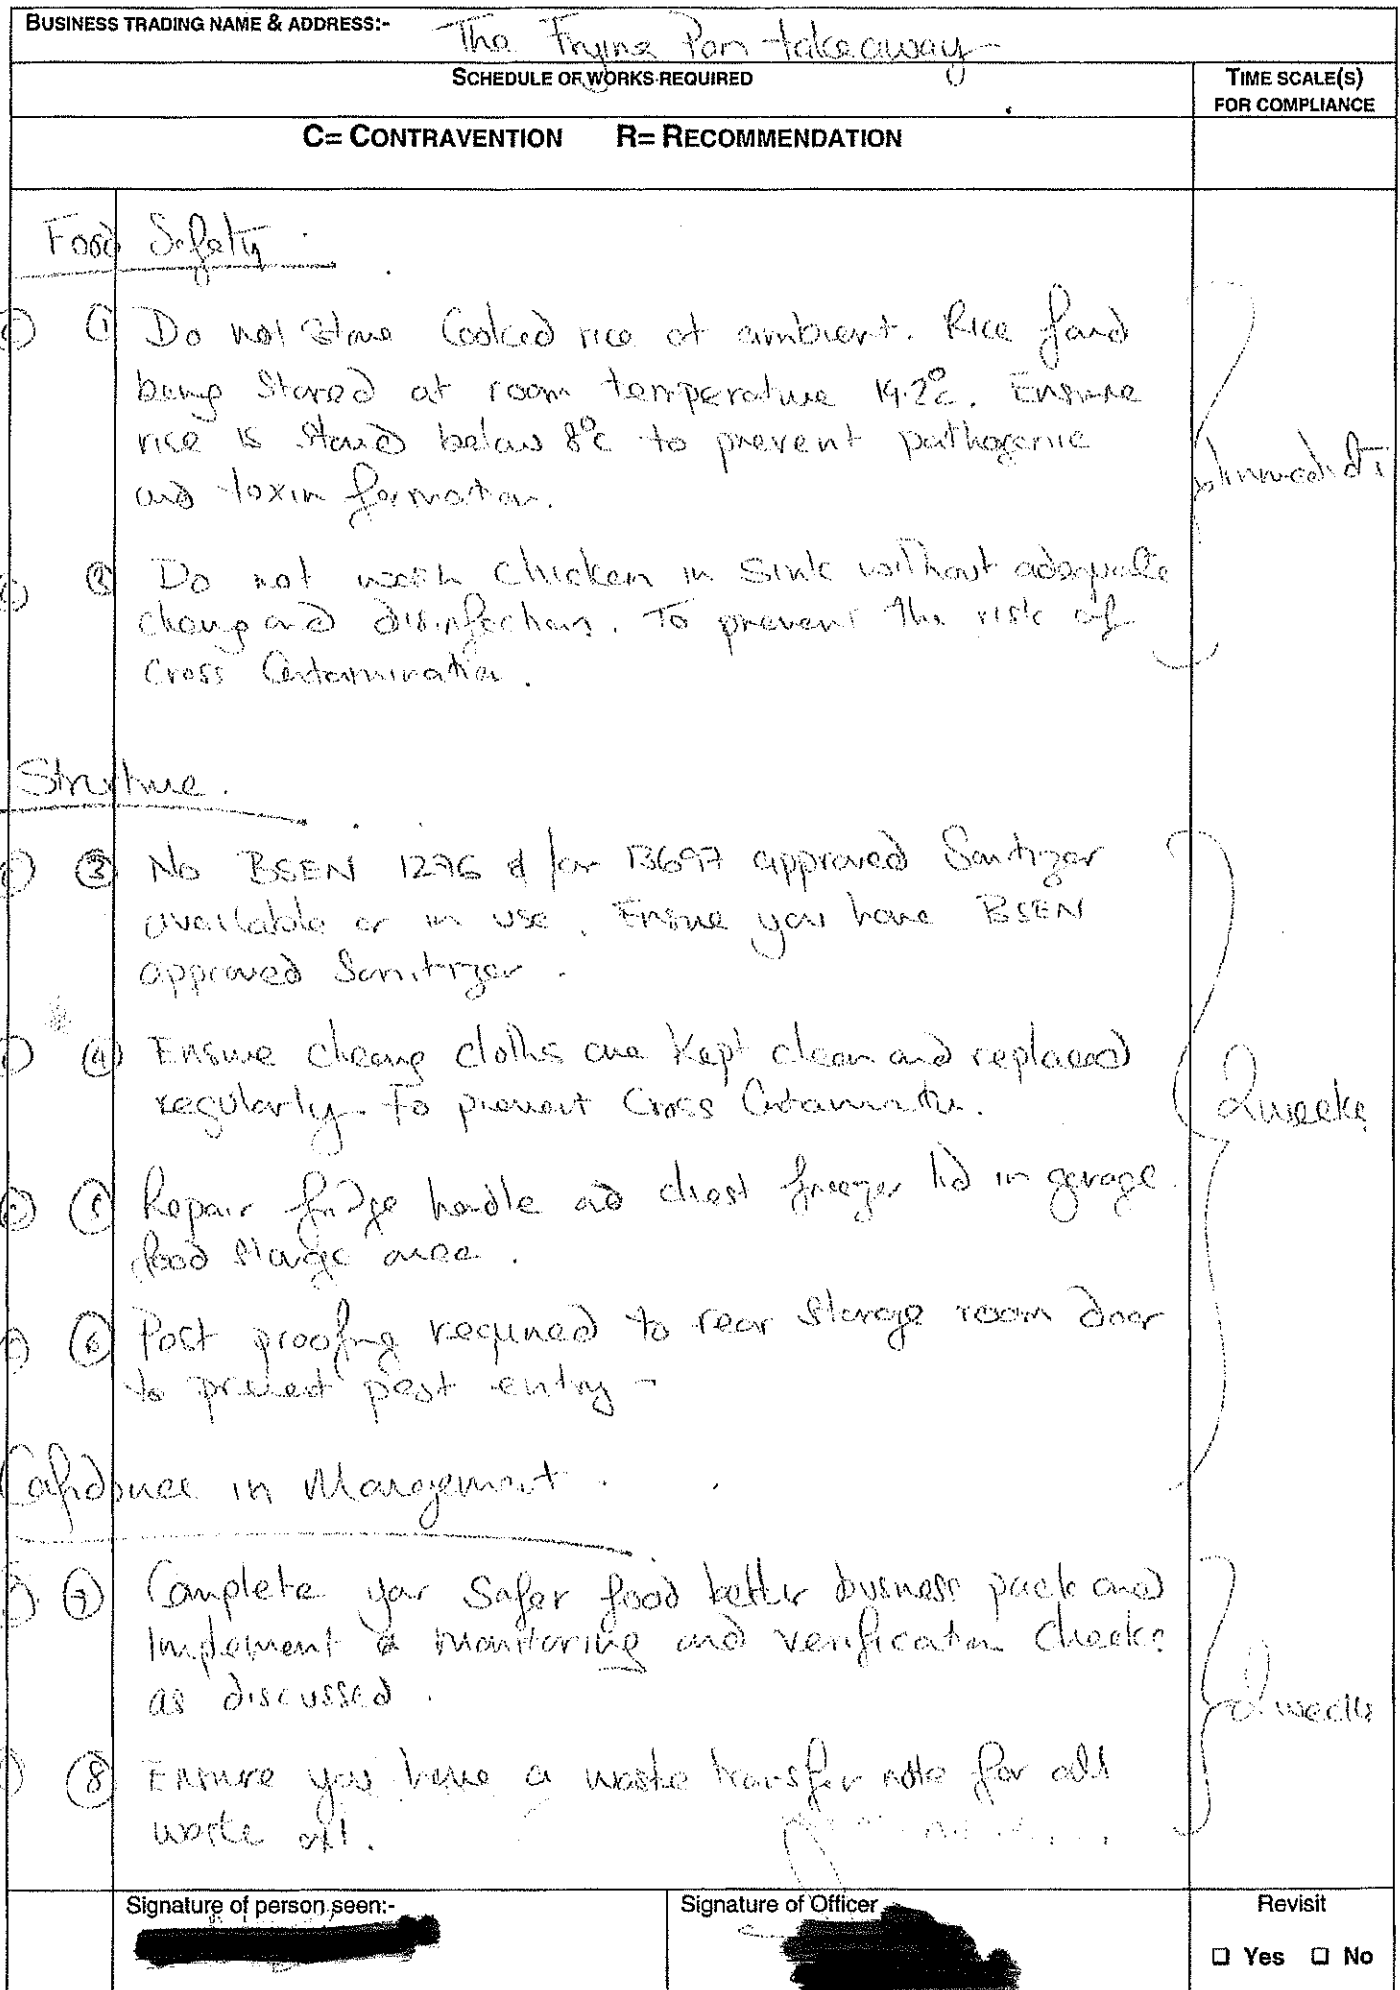 BUSINESS TRADING NAME & ADDRESS:- The Frying Pan takeaway
SCHEDULE OF WORKS REQUIRED
TIME SCALE(S)
FOR COMPLIANCE
C= CONTRAVENTION R= RECOMMENDATION
Food Safety
① Do not store Cooked rice at ambient. Rice found
being stored at room temperature 19.2°c. Ensure
rice is stored below 8°c to prevent pathogenic
and toxin formation.
Immediate
② Do not wash chicken in sink without adequate
cleaning and disinfections. To prevent the risk of
Cross Contamination.
Structure.
③ No BSEN 1276 & /or 13697 approved Sanitizer
available or in use. Ensure you have BSEN
approved Sanitizer.
④ Ensure cleaning cloths are kept clean and replaced
regularly. To prevent Cross Contamination.
2 weeks
⑤ Repair fridge handle and chest freezer lid in garage
food storage area.
⑥ Pest proofing required to rear storage room door
to prevent pest entry -
Confidence in Management.
⑦ Complete your Safer food better business pack and
Implement monitoring and verification checks
as discussed.
2 weeks
⑧ Ensure you have a waste transfer note for all
waste oil.
Signature of person seen:-
Signature of Officer
Revisit
☐ Yes ☐ No